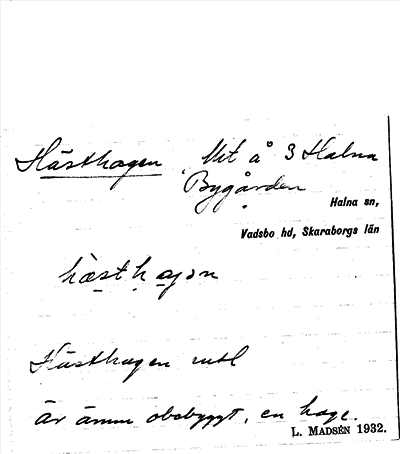 Hästhagen Vret å 3 Halna
Bygården
Halna sn,
Vadsbo hd, Skaraborgs län
hästhagən
Hästhagen
är ännu obebyggt, en hage.
L. MADSÉN 1932.